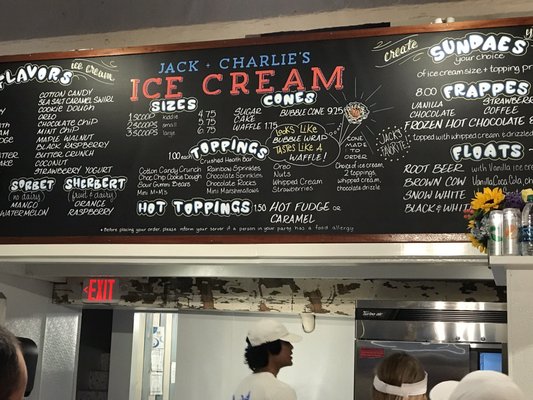 FLAVORS
ice cream
COTTON CANDY
SEA SALT CARAMEL SWIRL
COOKIE DOUGH
OREO
CHOCOLATE CHIP
MINT CHIP
MAPLE WALNUT
BLACK RASPBERRY
BUTTER CRUNCH
COCONUT
STRAWBERRY
SORBET
(no dairy)
MANGO
WATERMELON
SHERBERT
(fruit + dairy)
ORANGE
RASPBERRY
JACK + CHARLIE'S
ICE CREAM
SIZES
1 SCOOP kiddie 4.75
2 SCOOPS small 5.75
3 SCOOPS large 6.75
CONES
SUGAR
CAKE
WAFFLE 1.75
BUBBLE CONE 9.25
LOOKS LIKE
BUBBLE WRAP
TASTES LIKE A
WAFFLE!
CONE
MADE
TO
ORDER
Choice of ice cream,
2 toppings,
whipped cream,
chocolate drizzle
JACK'S
FAVORITE
1.00 each
TOPPINGS
Crushed Heath Bar
Cotton Candy Crunch
Choc Chip Cookie Dough
Sour Gummi Bears
Mini M+M's
Rainbow Sprinkles
Chocolate Sprinkles
Chocolate Rocks
Mini Marshmallows
Oreo
Nuts
Whipped Cream
Strawberries
HOT TOPPINGS 1.50 HOT FUDGE or
CARAMEL
* Before placing your order, please inform your server if a person in your party has a food allergy
create
SUNDAES
your choice
of ice cream size + topping
8.00
FRAPPES
VANILLA
CHOCOLATE
STRAWBERRY
COFFEE
FROZEN HOT CHOCOLATE
topped with whipped cream & drizzle
FLOATS
ROOT BEER with Vanilla ice
BROWN COW
SNOW WHITE
BLACK & WHITE
EXIT
ICE
CREAM